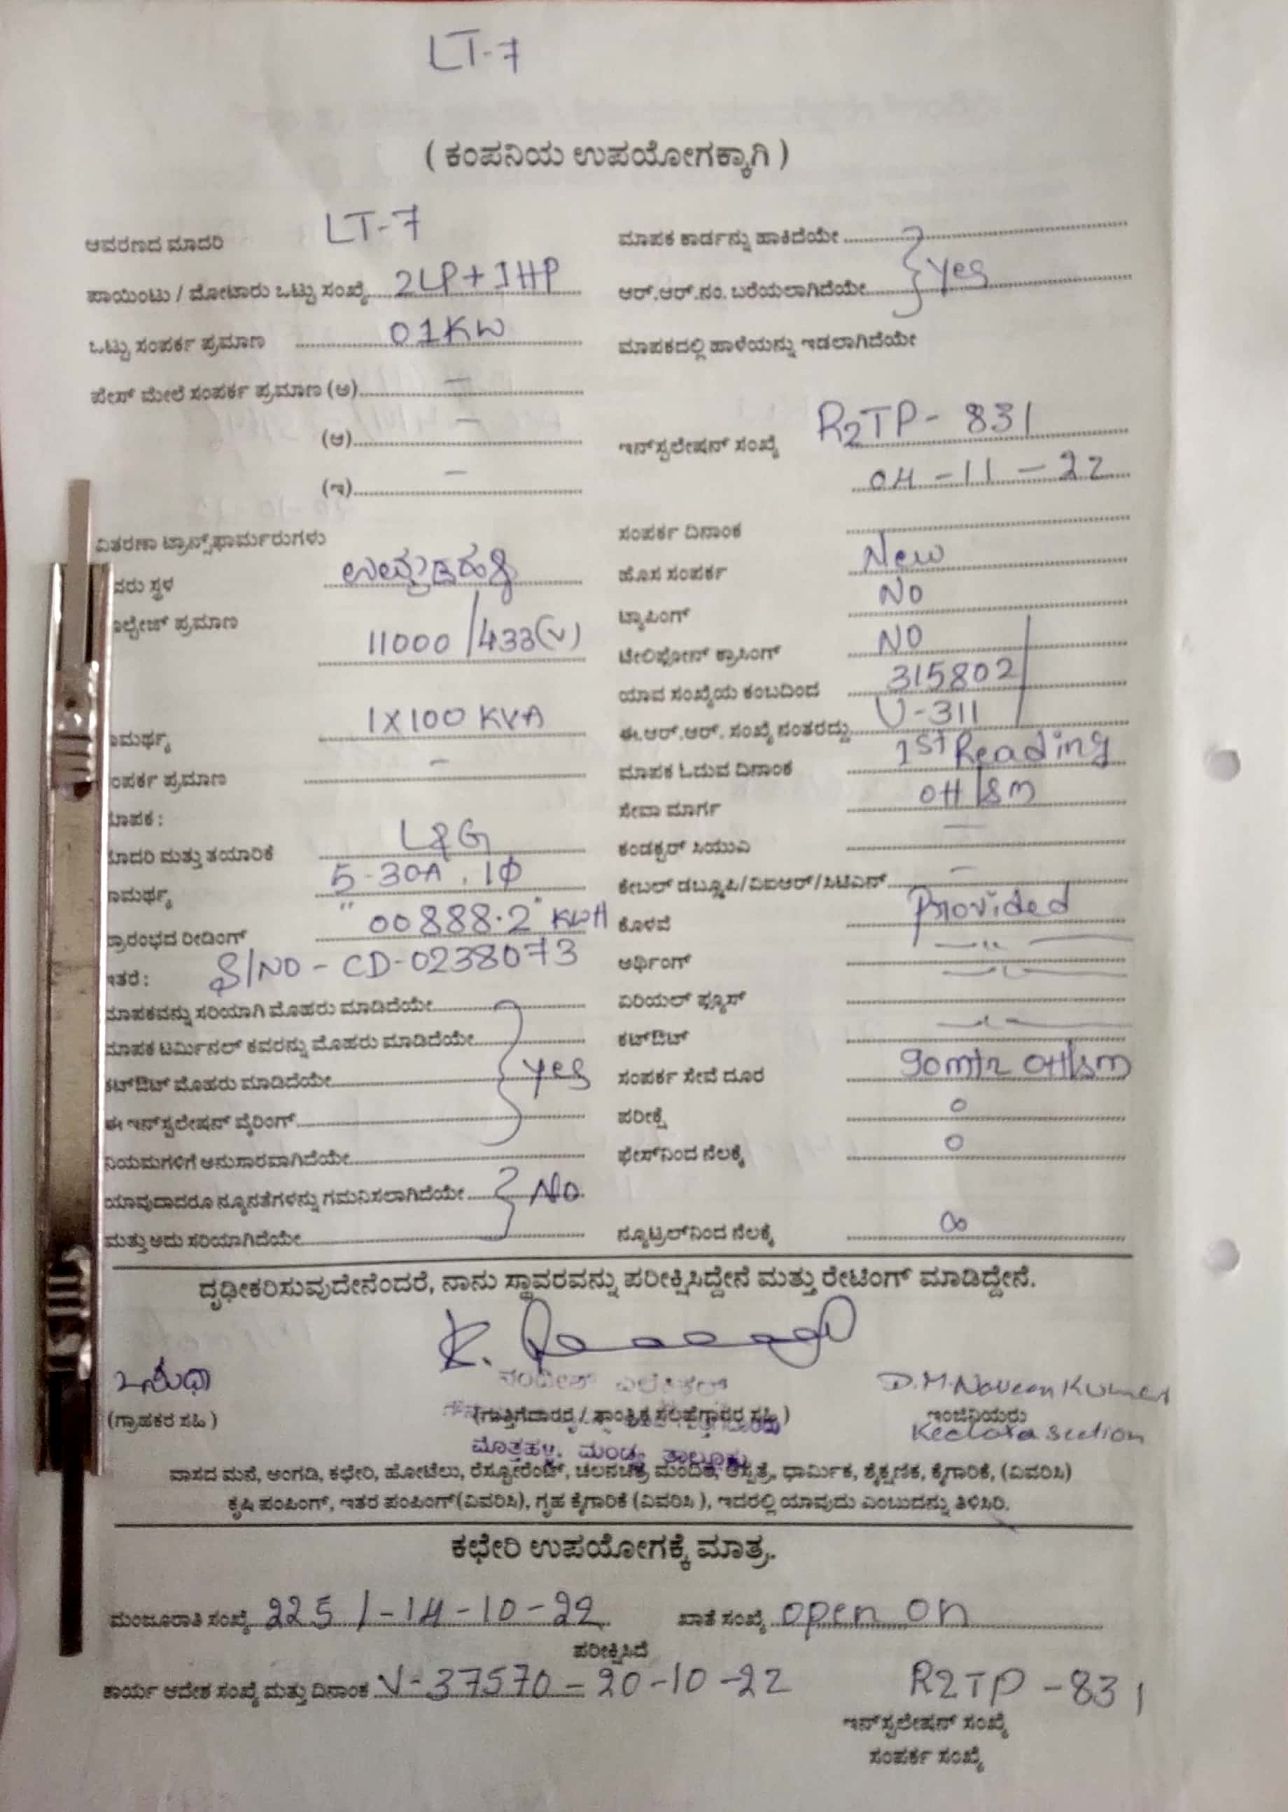 LT-7
( ಕಂಪನಿಯ ಉಪಯೋಗಕ್ಕಾಗಿ )
ಆವರಣದ ಮಾದರಿ LT-7
ಪಾಯಿಂಟು / ಮೋಟಾರು ಒಟ್ಟು ಸಂಖ್ಯೆ 2LP+1HP
ಒಟ್ಟು ಸಂಪರ್ಕ ಪ್ರಮಾಣ 01KW
ಪೇಸ್ ಮೇಲೆ ಸಂಪರ್ಕ ಪ್ರಮಾಣ (ಅ) —
(ಆ) —
(ಇ) —
ವಿತರಣಾ ಟ್ರಾನ್ಸ್‌ಫಾರ್ಮರುಗಳು
ವರು ಸ್ಥಳ
ಾಲ್ಟೇಜ್ ಪ್ರಮಾಣ 11000/433(V)
ಾಮರ್ಥ್ಯ 1X100 KVA
ಂಪರ್ಕ ಪ್ರಮಾಣ —
ಮಾಪಕ :
ಮಾದರಿ ಮತ್ತು ತಯಾರಿಕೆ L&G
ಾಮರ್ಥ್ಯ 5-30A, 1Φ
ಪ್ರಾರಂಭದ ರೀಡಿಂಗ್ "00888.2" KWH
ಇತರೆ : S/NO - CD-0238073
ಮಾಪಕವನ್ನು ಸರಿಯಾಗಿ ಮೊಹರು ಮಾಡಿದೆಯೇ
ಮಾಪಕ ಟರ್ಮಿನಲ್ ಕವರನ್ನು ಮೊಹರು ಮಾಡಿದೆಯೇ
ಕಟ್‌ಔಟ್ ಮೊಹರು ಮಾಡಿದೆಯೇ Yes
ಈ ಇನ್‌ಸ್ಟಲೇಷನ್ ವೈರಿಂಗ್
ನಿಯಮಗಳಿಗೆ ಅನುಸಾರವಾಗಿದೆಯೇ
ಯಾವುದಾದರೂ ನ್ಯೂನತೆಗಳನ್ನು ಗಮನಿಸಲಾಗಿದೆಯೇ No
ಮತ್ತು ಅದು ಸರಿಯಾಗಿದೆಯೇ
ಮಾಪಕ ಕಾರ್ಡನ್ನು ಹಾಕಿದೆಯೇ
ಆರ್.ಆರ್.ನಂ. ಬರೆಯಲಾಗಿದೆಯೇ Yes
ಮಾಪಕದಲ್ಲಿ ಹಾಳೆಯನ್ನು ಇಡಲಾಗಿದೆಯೇ
ಇನ್‌ಸ್ಟಲೇಷನ್ ಸಂಖ್ಯೆ R2TP- 831
04-11-22
ಸಂಪರ್ಕ ದಿನಾಂಕ
ಹೊಸ ಸಂಪರ್ಕ New
ಟ್ಯಾಪಿಂಗ್ NO
ಟೆಲಿಫೋನ್ ಕ್ರಾಸಿಂಗ್ NO
ಯಾವ ಸಂಖ್ಯೆಯ ಕಂಬದಿಂದ 315802
ಈ.ಆರ್.ಆರ್. ಸಂಖ್ಯೆ ನಂತರದ್ದು U-311
ಮಾಪಕ ಓದುವ ದಿನಾಂಕ 1st Reading
ಸೇವಾ ಮಾರ್ಗ OH/sm
ಕಂಡಕ್ಟರ್ ಸಿಯುಎ —
ಕೇಬಲ್ ಡಬ್ಲ್ಯೂಪಿ/ವಿಐಆರ್/ಸಿಟಿಎಸ್ —
ಕೊಳವೆ Provided
ಅರ್ಥಿಂಗ್ —"—
ಏರಿಯಲ್ ಫ್ಯೂಸ್ —"—
ಕಟ್‌ಔಟ್ —"—
ಸಂಪರ್ಕ ಸೇವೆ ದೂರ 90mtr OH/sm
ಪರೀಕ್ಷೆ 0
ಫೇಸ್‌ನಿಂದ ನೆಲಕ್ಕೆ 0
ನ್ಯೂಟ್ರಲ್‌ನಿಂದ ನೆಲಕ್ಕೆ ∞
ದೃಢೀಕರಿಸುವುದೇನೆಂದರೆ, ನಾನು ಸ್ಥಾವರವನ್ನು ಪರೀಕ್ಷಿಸಿದ್ದೇನೆ ಮತ್ತು ರೇಟಿಂಗ್ ಮಾಡಿದ್ದೇನೆ.
D.M. Naveen Kumar
(ಗ್ರಾಹಕರ ಸಹಿ ) (ಗುತ್ತಿಗೆದಾರರ / ತಾಂತ್ರಿಕ ಸಲಹೆಗಾರರ ಸಹಿ ) ಇಂಜಿನಿಯರು
Keelara section
ಮಂಡ್ಯ ತಾಲ್ಲೂಕು
ವಾಸದ ಮನೆ, ಅಂಗಡಿ, ಕಛೇರಿ, ಹೋಟೆಲು, ರೆಸ್ಟೋರೆಂಟ್, ಚಲನಚಿತ್ರ ಮಂದಿರ, ಆಸ್ಪತ್ರೆ, ಧಾರ್ಮಿಕ, ಶೈಕ್ಷಣಿಕ, ಕೈಗಾರಿಕೆ, (ವಿವರಿಸಿ)
ಕೃಷಿ ಪಂಪಿಂಗ್, ಇತರ ಪಂಪಿಂಗ್(ವಿವರಿಸಿ), ಗೃಹ ಕೈಗಾರಿಕೆ (ವಿವರಿಸಿ ), ಇದರಲ್ಲಿ ಯಾವುದು ಎಂಬುದನ್ನು ತಿಳಿಸಿರಿ.
ಕಛೇರಿ ಉಪಯೋಗಕ್ಕೆ ಮಾತ್ರ.
ಮಂಜೂರಾತಿ ಸಂಖ್ಯೆ 225 /-14-10-22 ಖಾತೆ ಸಂಖ್ಯೆ open on
ಪರೀಕ್ಷಿಸಿದೆ
ಕಾರ್ಯ ಆದೇಶ ಸಂಖ್ಯೆ ಮತ್ತು ದಿನಾಂಕ V-37570 = 20-10-22 R2TP -831
ಇನ್‌ಸ್ಟಲೇಷನ್ ಸಂಖ್ಯೆ
ಸಂಪರ್ಕ ಸಂಖ್ಯೆ